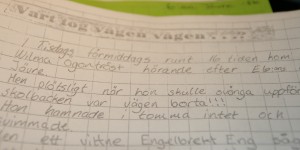 Vart tog vägen vägen????
Tisdags förmiddags runt 10 tiden kom
Wilma Ögontröst hörande efter
Men plötsligt när hon skulle svänga uppför
skolbacken var vägen borta!!!
Hon hamnade i tomma intet och
svimmade.
Men ett vittne Engelbrekt Eng